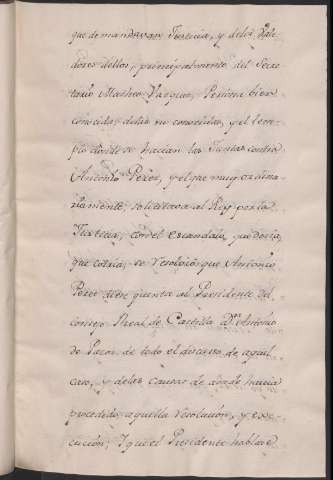 que demandavan Justicia, y delos Vale-
dores dellos, principalmente del Secre-
tario Matheo Vazquez, Persona bien
conocida, dela su conocidas, y el tem-
plo donde se hacian las Juntas contra
Antonio Perez, y el que muy ordina-
riamente, solicitava al Rey por la
Justicia, con el escandalo, que decia,
que corria, se resolvio que Antonio
Perez diese quenta al Presidente del
consejo Real de Castilla Dn. Antonio
de Pazos de todo el discurso de aquel
caso, y delas causas de donde havia
procedido aquella resolucion, y exe-
cucion; Y que el Presidente hablase